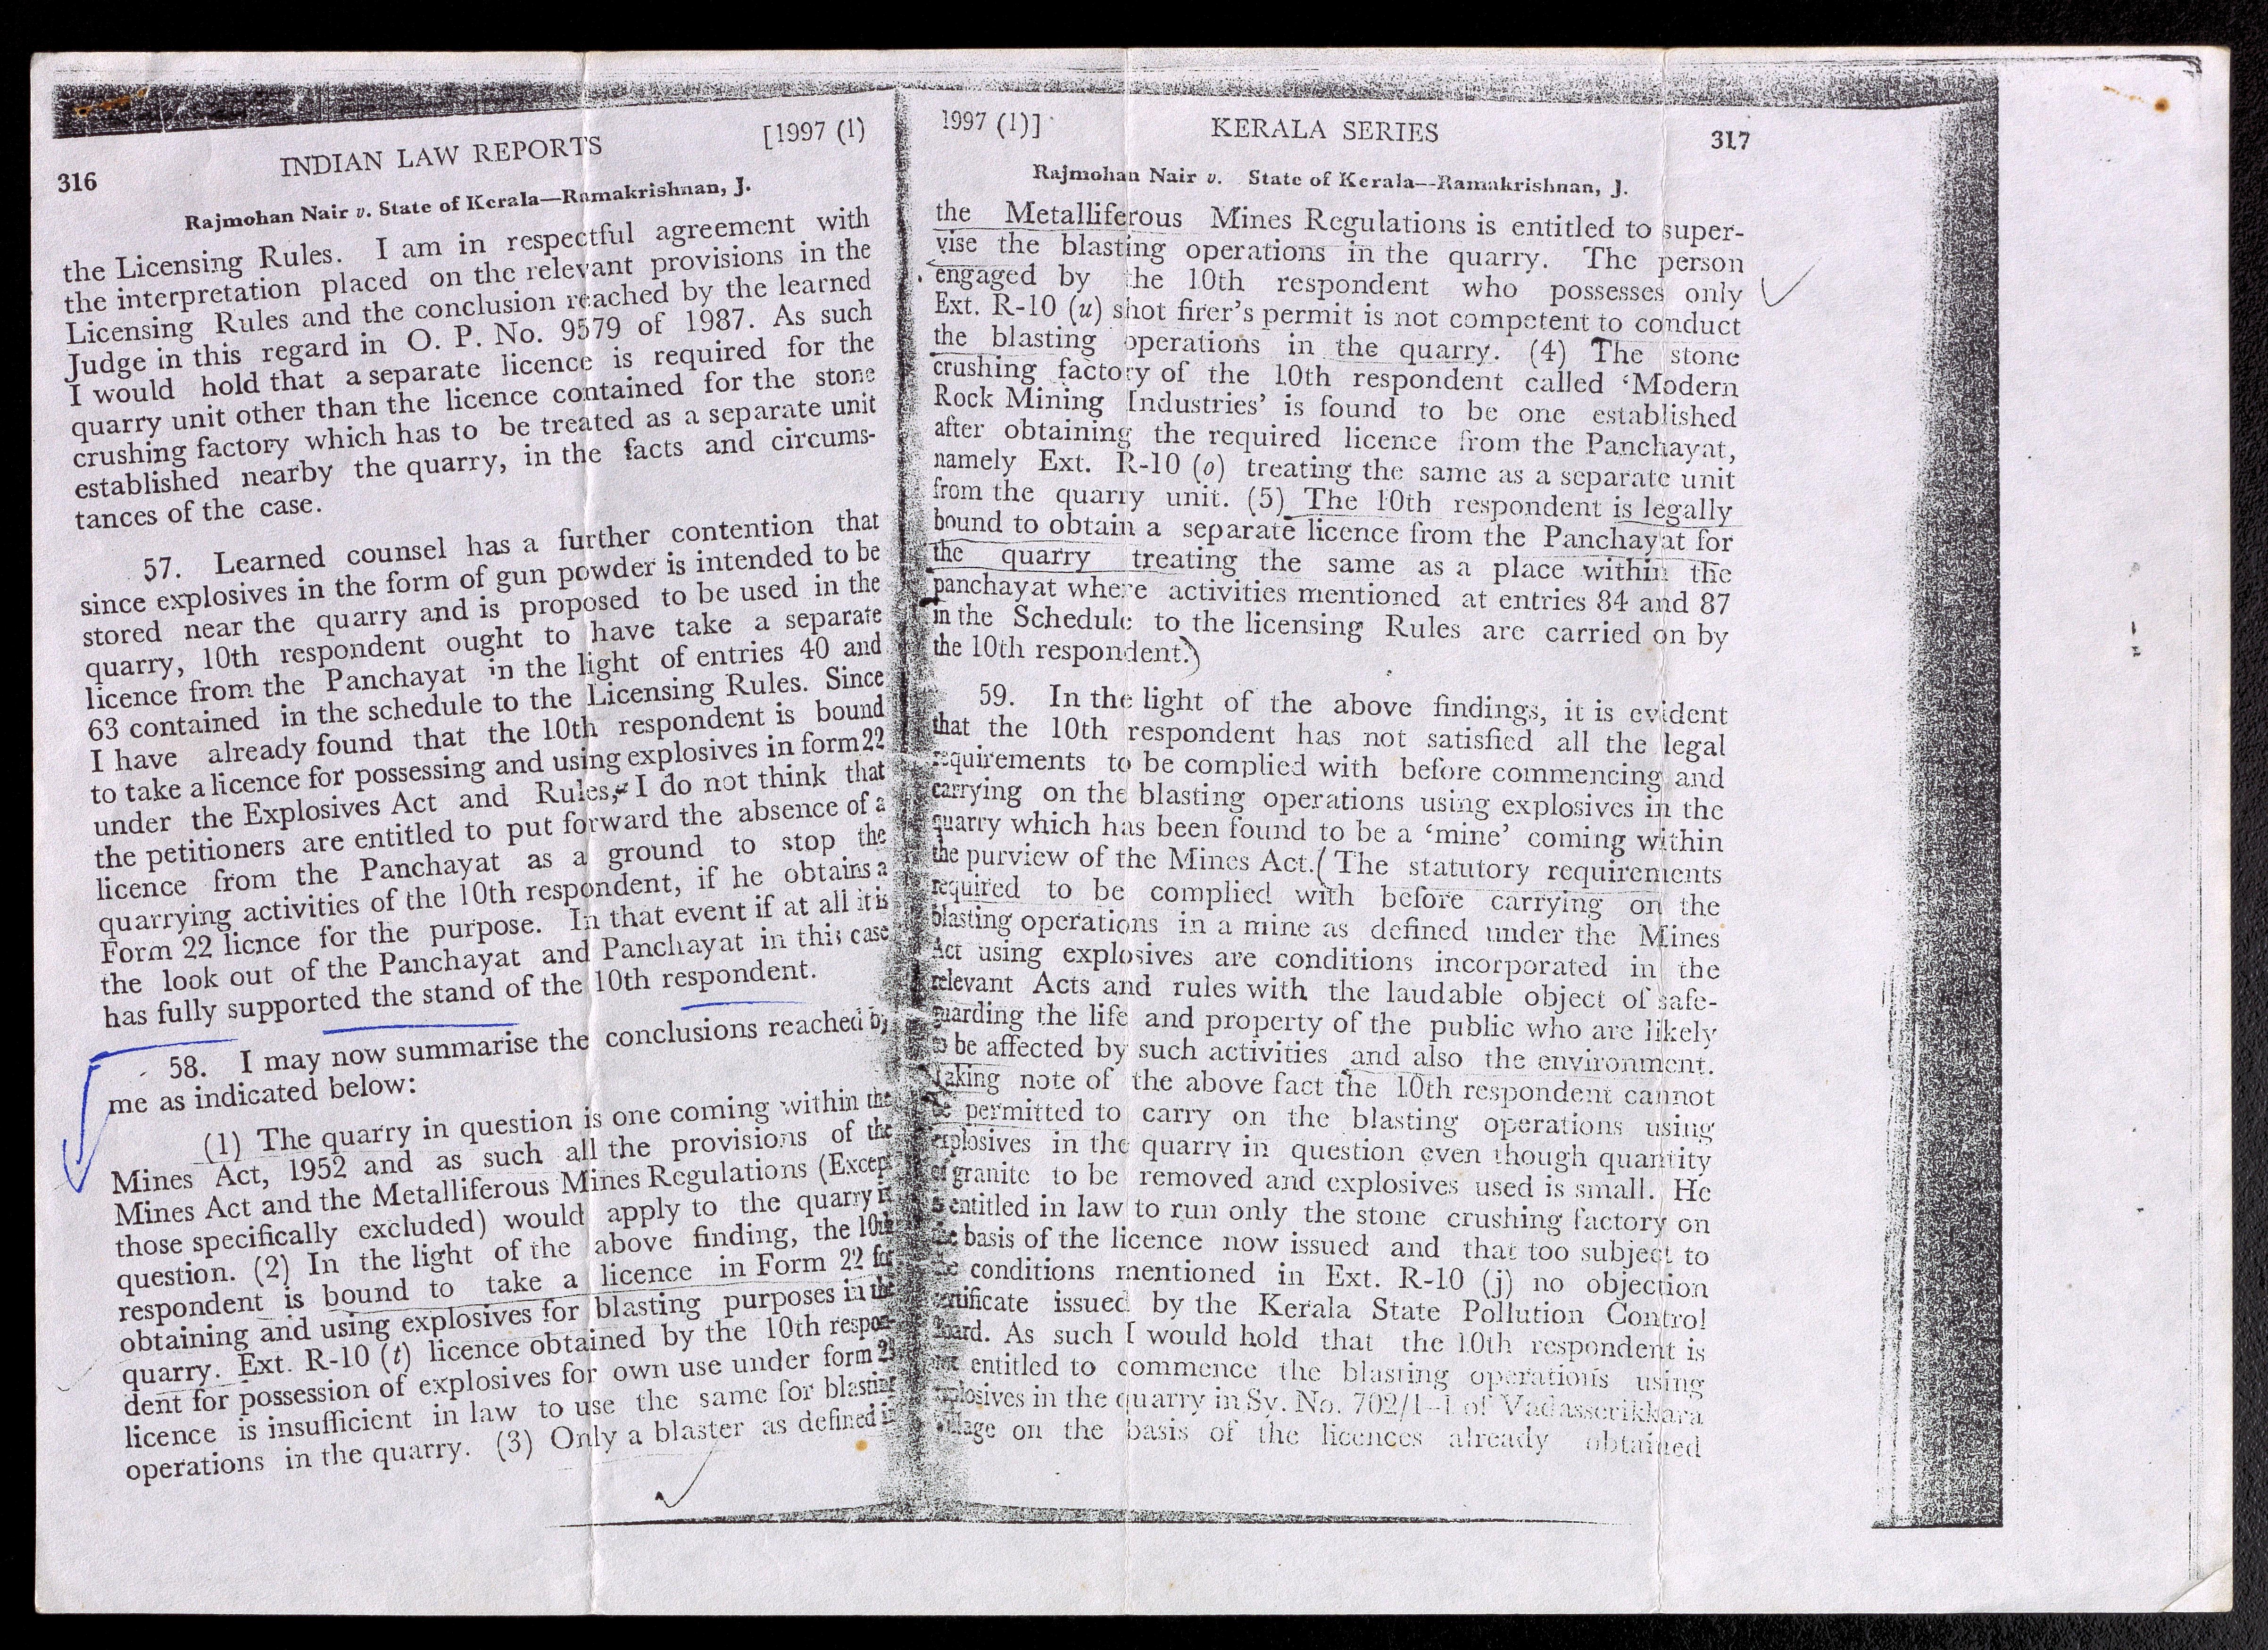 316
INDIAN LAW REPORTS
[1997 (1)
Rajmohan Nair v. State of Kerala—Ramakrishnan, J.
the Licensing Rules. I am in respectful agreement with
the interpretation placed on the relevant provisions in the
Licensing Rules and the conclusion reached by the learned
Judge in this regard in O. P. No. 9579 of 1987. As such
I would hold that a separate licence is required for the
quarry unit other than the licence contained for the stone
crushing factory which has to be treated as a separate unit
established nearby the quarry, in the facts and circums-
tances of the case.
57. Learned counsel has a further contention that
since explosives in the form of gun powder is intended to be
stored near the quarry and is proposed to be used in the
quarry, 10th respondent ought to have take a separate
licence from the Panchayat in the light of entries 40 and
63 contained in the schedule to the Licensing Rules. Since
I have already found that the 10th respondent is bound
to take a licence for possessing and using explosives in form 22
under the Explosives Act and Rules, I do not think that
the petitioners are entitled to put forward the absence of a
licence from the Panchayat as a ground to stop the
quarrying activities of the 10th respondent, if he obtains a
Form 22 licnce for the purpose. In that event if at all it is
the look out of the Panchayat and Panchayat in this case
has fully supported the stand of the 10th respondent.
58. I may now summarise the conclusions reached by
me as indicated below:
(1) The quarry in question is one coming within the
Mines Act, 1952 and as such all the provisions of the
Mines Act and the Metalliferous Mines Regulations (Except
those specifically excluded) would apply to the quarry in
question. (2) In the light of the above finding, the 10th
respondent is bound to take a licence in Form 22 for
obtaining and using explosives for blasting purposes in the
quarry. Ext. R-10 (t) licence obtained by the 10th respon-
dent for possession of explosives for own use under form
licence is insufficient in law to use the same for blasting
operations in the quarry. (3) Only a blaster as defined in
1997 (1)]
KERALA SERIES
317
Rajmohan Nair v. State of Kerala—Ramakrishnan, J.
the Metalliferous Mines Regulations is entitled to super-
vise the blasting operations in the quarry. The person
engaged by the 10th respondent who possesses only
Ext. R-10 (u) shot firer's permit is not competent to conduct
the blasting operations in the quarry. (4) The stone
crushing factory of the 10th respondent called 'Modern
Rock Mining Industries' is found to be one established
after obtaining the required licence from the Panchayat,
namely Ext. R-10 (o) treating the same as a separate unit
from the quarry unit. (5) The 10th respondent is legally
bound to obtain a separate licence from the Panchayat for
the quarry treating the same as a place within the
panchayat where activities mentioned at entries 84 and 87
in the Schedule to the licensing Rules are carried on by
the 10th respondent.)
59. In the light of the above findings, it is evident
that the 10th respondent has not satisfied all the legal
requirements to be complied with before commencing and
carrying on the blasting operations using explosives in the
quarry which has been found to be a 'mine' coming within
the purview of the Mines Act. (The statutory requirements
required to be complied with before carrying on the
blasting operations in a mine as defined under the Mines
Act using explosives are conditions incorporated in the
relevant Acts and rules with the laudable object of safe-
guarding the life and property of the public who are likely
to be affected by such activities and also the environment.
Taking note of the above fact the 10th respondent cannot
be permitted to carry on the blasting operations using
explosives in the quarry in question even though quantity
of granite to be removed and explosives used is small. He
is entitled in law to run only the stone crushing factory on
the basis of the licence now issued and that too subject to
the conditions mentioned in Ext. R-10 (j) no objection
certificate issued by the Kerala State Pollution Control
Board. As such I would hold that the 10th respondent is
not entitled to commence the blasting operations using
explosives in the quarry in Sy. No. 702/1-1 of Vadasserikkara
village on the basis of the licences already obtained